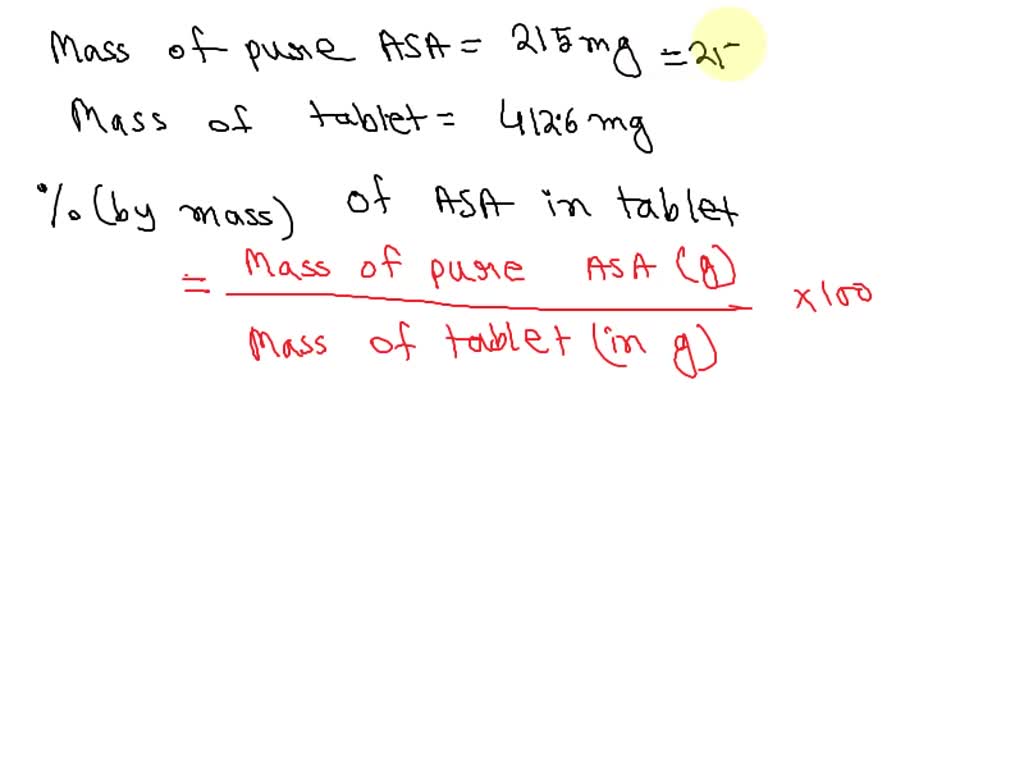 Mass of pure ASA = 215 mg = 215
Mass of tablet = 412.6 mg
% (by mass) of ASA in tablet
= Mass of pure ASA (g) x 100
Mass of tablet (in g)